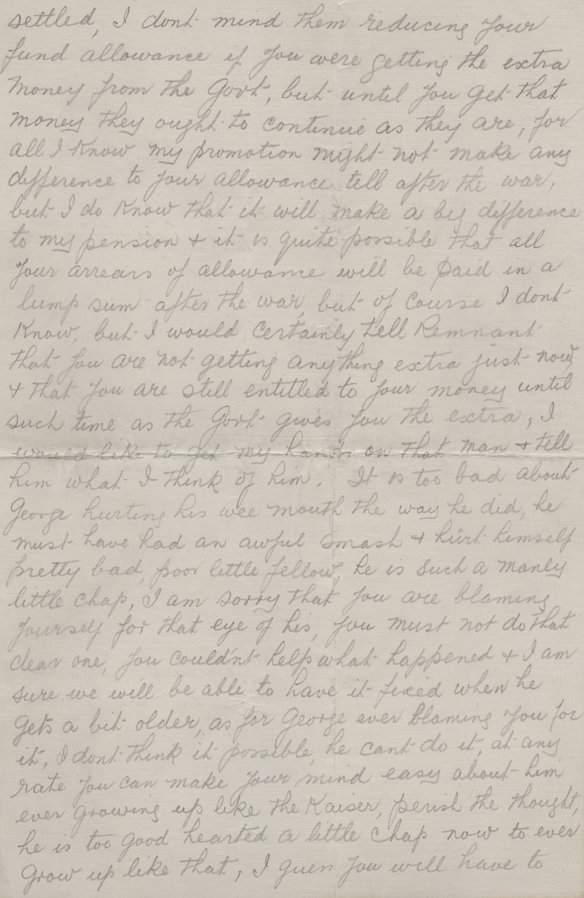 settled, I dont mind them reducing your
fund allowance if you were getting the extra
money from the Govt, but until you get that
money they ought to continue as they are, for
all I know my promotion might not make any
difference to your allowance tell after the war,
but I do know that it will make a big difference
to my pension & it is quite possible that all
your arrears of allowance will be paid in a
lump sum after the war, but of course I dont
know, but I would certainly tell Remnant
that you are not getting anything extra just now
& that you are still entitled to your money until
such time as the Govt gives you the extra, I
would like to get my hands on that man & tell
him what I think of him. It is too bad about
George hurting his wee mouth the way he did, he
must have had an awful smash & hurt himself
pretty bad, poor little fellow, he is such a manly
little chap, I am sorry that you are blaming
yourself for that eye of his, you must not do that
dear one, you could'nt help what happened & I am
sure we will be able to have it fixed when he
gets a bit older, as for George ever blaming you for
it, I dont think it possible, he cant do it, at any
rate you can make your mind easy about him
ever growing up like the Kaiser, perish the thought,
he is too good hearted a little chap now to ever
grow up like that, I guess you will have to